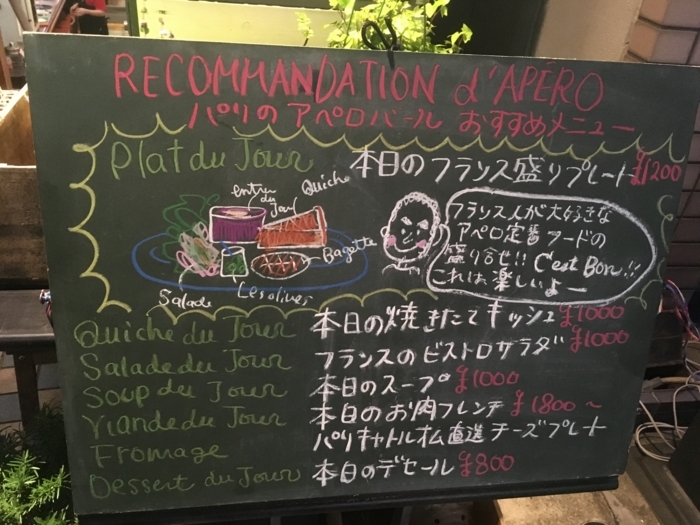 RECOMMANDATION d'APÉRO
パリのアペロバール おすすめメニュー
Plat du Jour 本日のフランス盛りプレート ¥1200
entrée du Jour
Quiche
Bagette
Salade
Les olives
フランス人が大好きな
アペロ定番フードの
盛り合せ!! C'est Bon!!
これは楽しいよー
Quiche du Jour 本日の焼きたてキッシュ ¥1000
Salade du Jour フランスのビストロサラダ ¥1000
Soup du Jour 本日のスープ ¥1000
Viande du Jour 本日のお肉フレンチ ¥1800~
Fromage パリキャトルオム直送チーズプレート
Dessert du Jour 本日のデセール ¥800